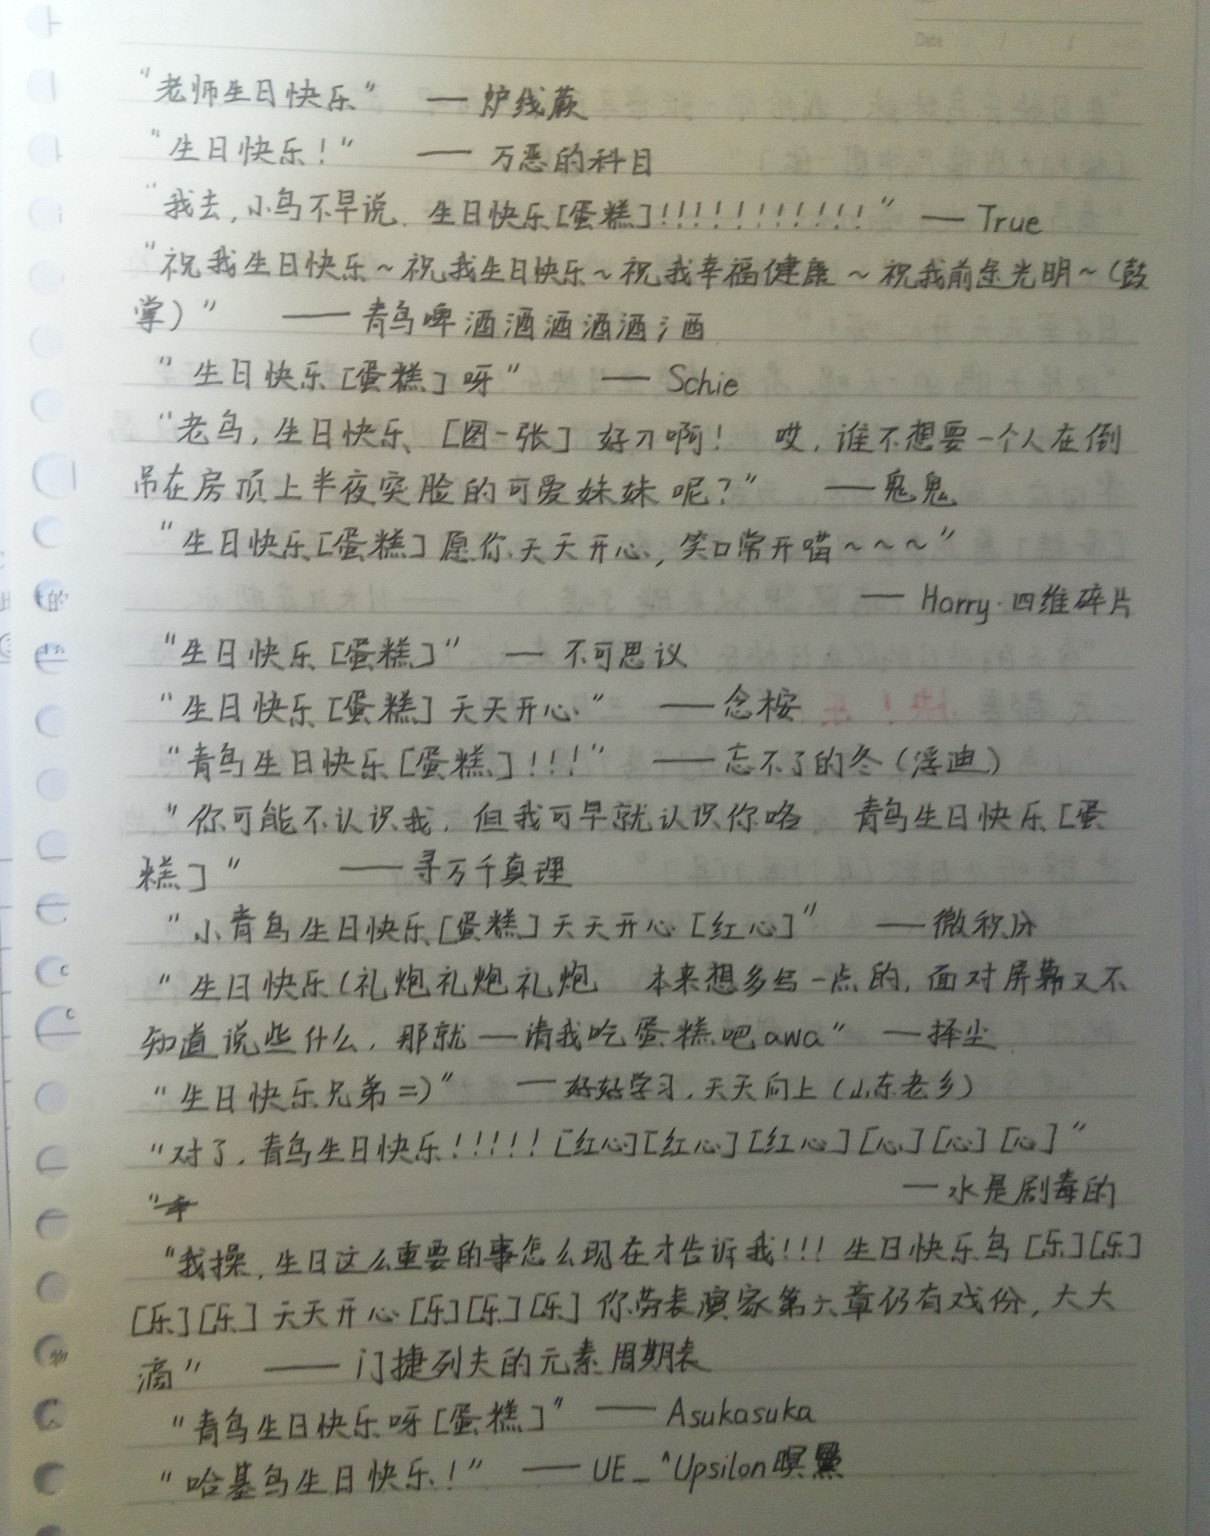 Date / /
“老师生日快乐” — 炉线蕨
“生日快乐！” — 万恶的科目
“我去，小鸟不早说．生日快乐［蛋糕］！！！！！！！！！！！” — True
“祝我生日快乐～祝我生日快乐～祝我幸福健康～祝我前途光明～（鼓
掌）” —— 青鸟啤酒酒酒酒酒氵酉
“生日快乐［蛋糕］呀” — Schie
“老鸟，生日快乐．［图一张］好刀啊！ 哎，谁不想要一个人在倒
吊在房顶上半夜突脸的可爱妹妹呢？” —— 鬼鬼
“生日快乐［蛋糕］愿你天天开心，笑口常开喵～～～”
— Harry·四维碎片
“生日快乐［蛋糕］” — 不可思议
“生日快乐［蛋糕］天天开心” —— 念桉
“青鸟生日快乐［蛋糕］！！！” —— 忘不了的冬（浮迪）
“你可能不认识我，但我可早就认识你咯 青鸟生日快乐［蛋
糕］” —— 寻万千真理
“小青鸟生日快乐［蛋糕］天天开心［红心］” —— 微积分
“生日快乐（礼炮礼炮礼炮 本来想多写一点的，面对屏幕又不
知道说些什么，那就—请我吃蛋糕吧awa” — 择尘
“生日快乐兄弟=）” — 好好学习，天天向上（山东老乡）
“对了，青鸟生日快乐！！！！！［红心］［红心］［红心］［心］［心］［心］”
— 水是剧毒的
“我操，生日这么重要的事怎么现在才告诉我！！！生日快乐鸟［乐］［乐］
［乐］［乐］天天开心［乐］［乐］［乐］你劳表演家第六章仍有戏份，大大
滴” —— 门捷列夫的元素周期表
“青鸟生日快乐呀［蛋糕］” —— Asukasuka
“哈基鸟生日快乐！” —— UE_^Upsilon暝